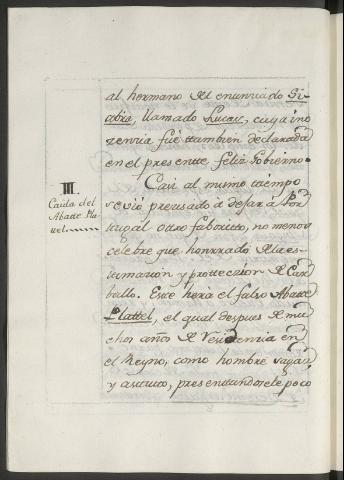 al hermano del enunciado Si-
abra, llamado Lucas, cuya ino
zencia fué tambien declarada
en el presente feliz Gobierno.
III.
Caida del
Abate Pla
tel.
Casi al mismo tiempo
se vió precisado á dejar á Por
tugal otro faborito, no menos
célebre que honrrado de la es
timacion y proteccion de Car
ballo. Este hera el falso Abate
Plattel, el qual despues de mu
chos años de Residencia en
el Reyno, como hombre sagáz
y astuto, presentandosele poco